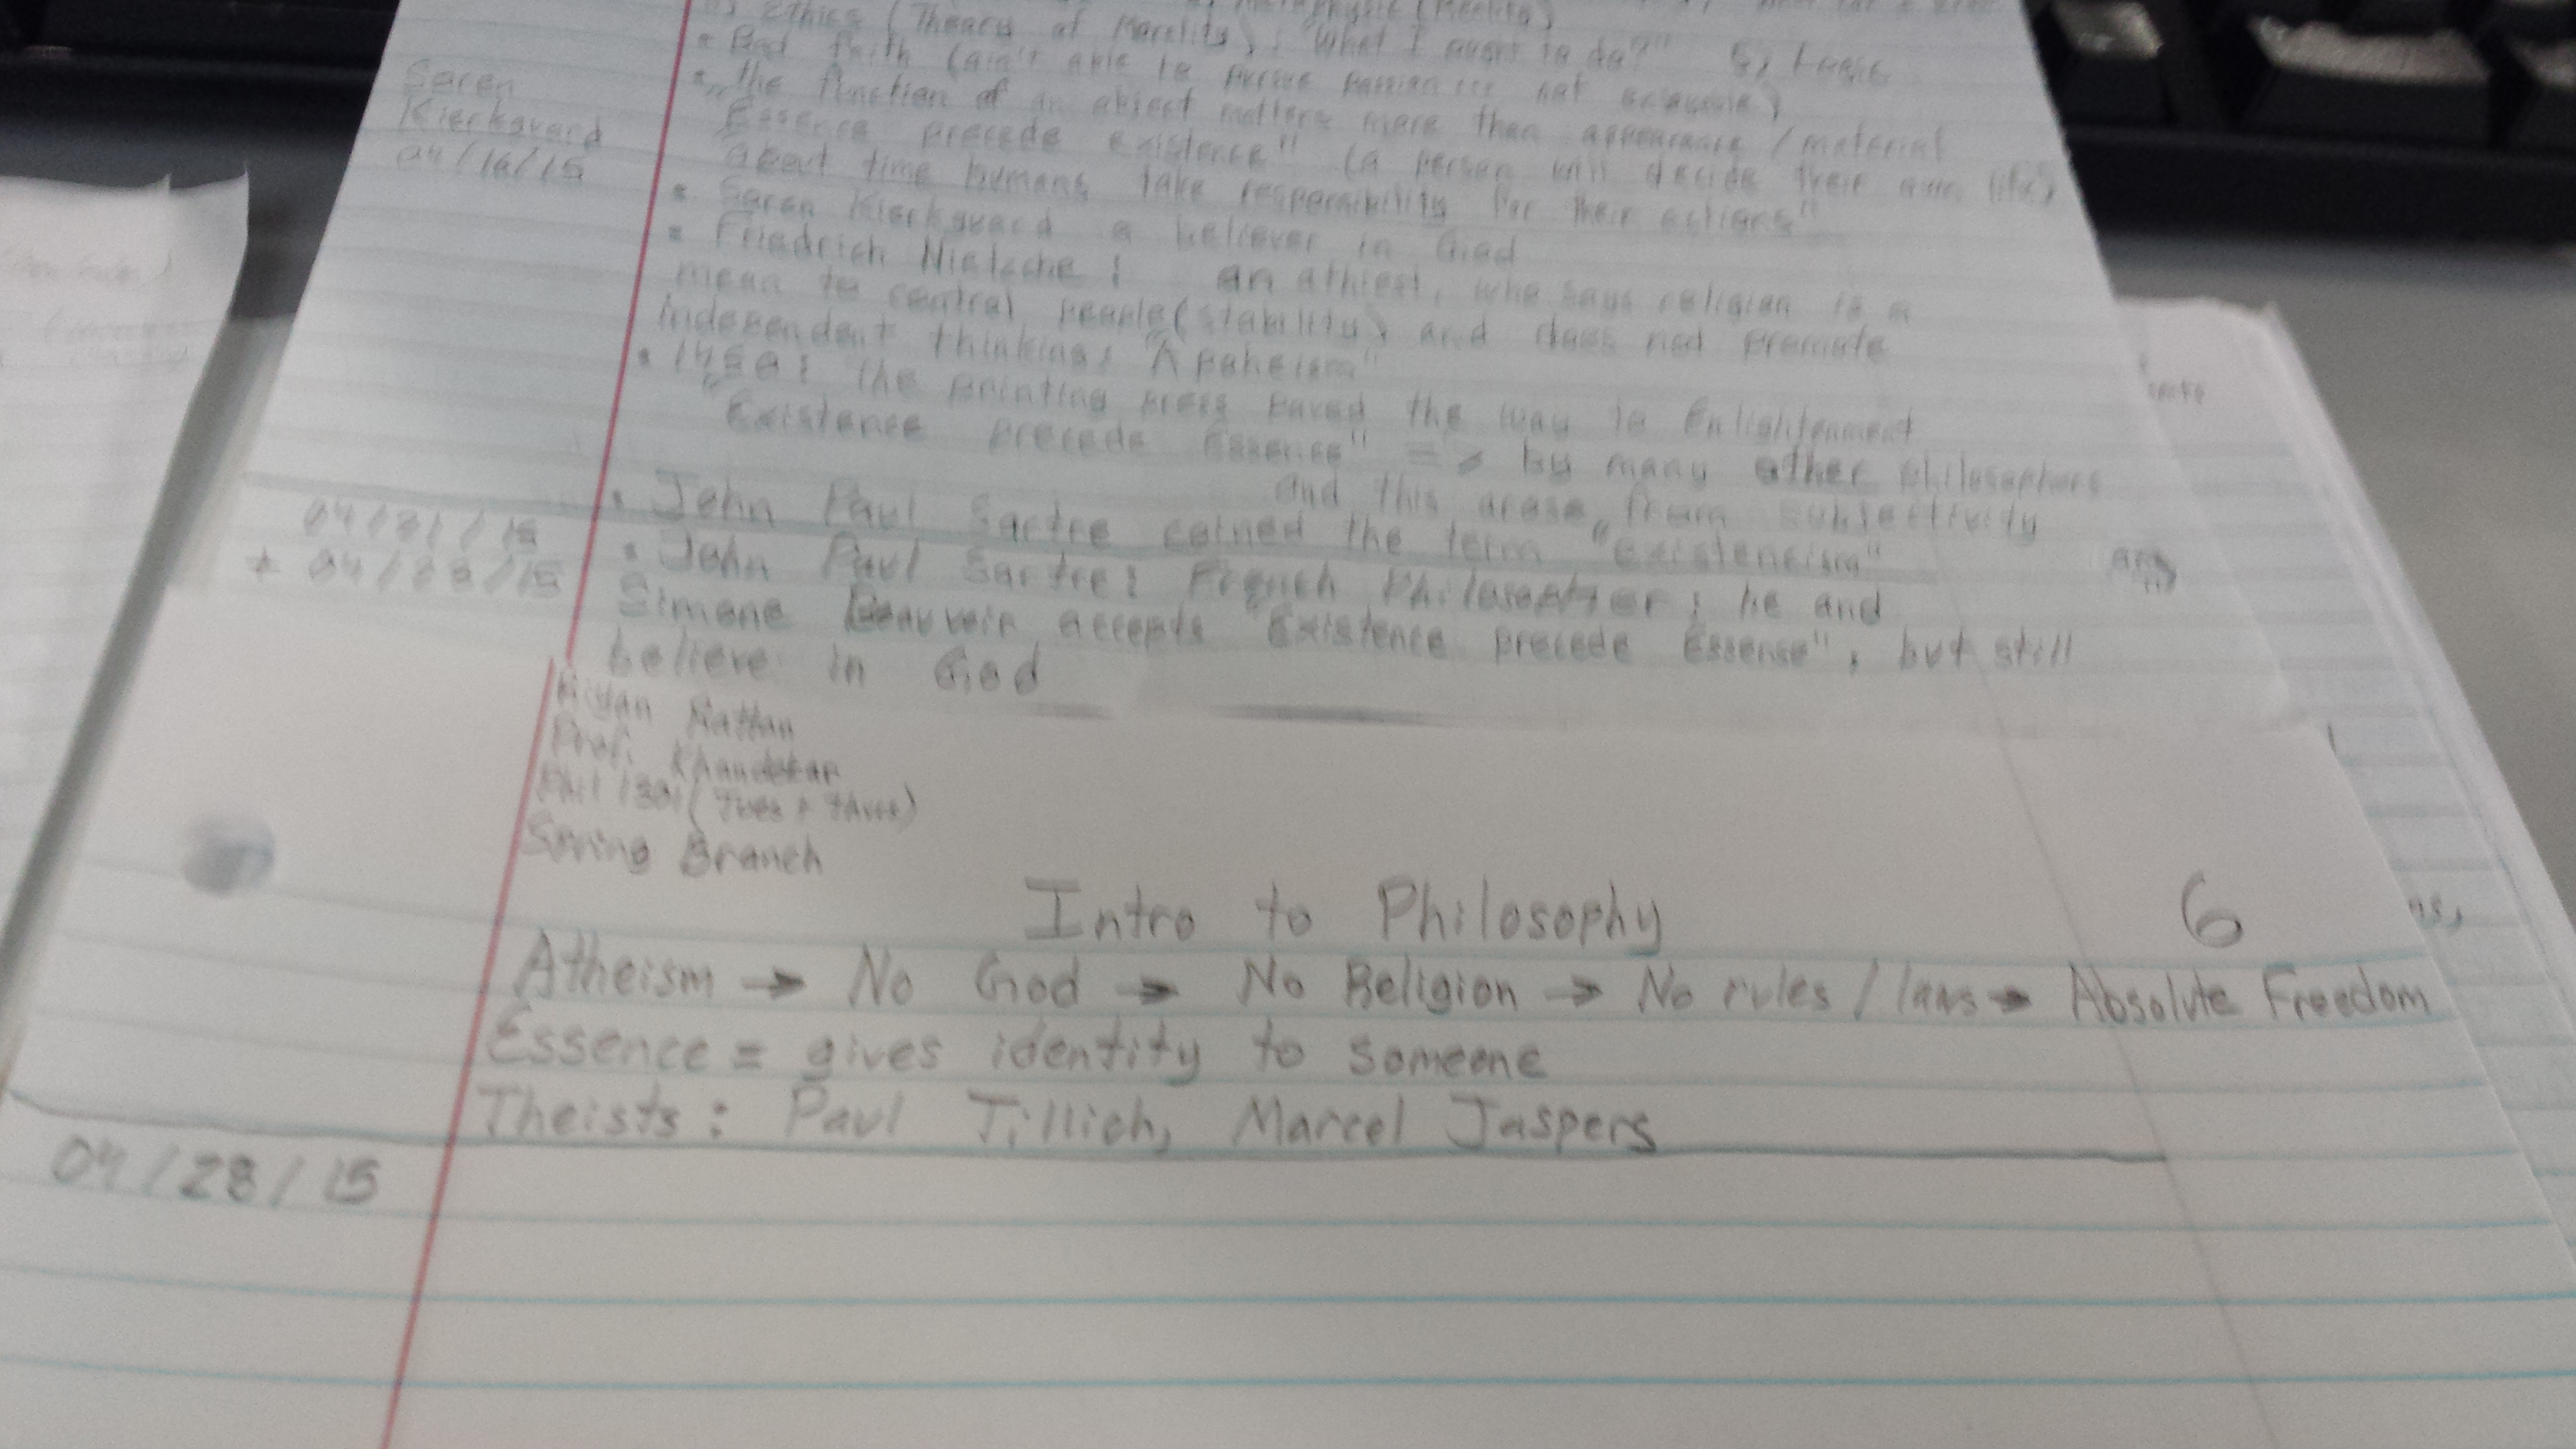 Ethics (Theory of Morality): "What I ought to do?" 5) Logic
• Bad faith (ain't able to pursue passion not
• The function of an object matters more than appearance / material
"Essence precede existence" (a person will decide their own life)
About time humans take responsibility for their actions"
Soren
Kierkgvard
04/16/15
• Soren Kierkgvard a believer in God
• Friedrich Nietzche: an athiest, who says religion is a
mean to control people (stability) and does not promote
independent thinking:
• 1450: the printing press paved the way to Enlightenment
"Existence precede Essence" => by many other philosophers
and this arose from subjectivity
04/21/15
• John Paul Sartre coined the term "existencism"
+ 04/23/15
• John Paul Sartre: French Philosopher; he and
Simone Beauvoir accepts "Existence precede Essense", but still
believe in God
Rattan
Prof. Khandekar
Phil 1301 (Tues + Thurs)
Spring Branch
Intro to Philosophy 6
Atheism → No God → No Religion → No rules / laws → Absolute Freedom
Essence = gives identity to someone
Theists: Paul Tillich, Marcel Jaspers
04/28/15